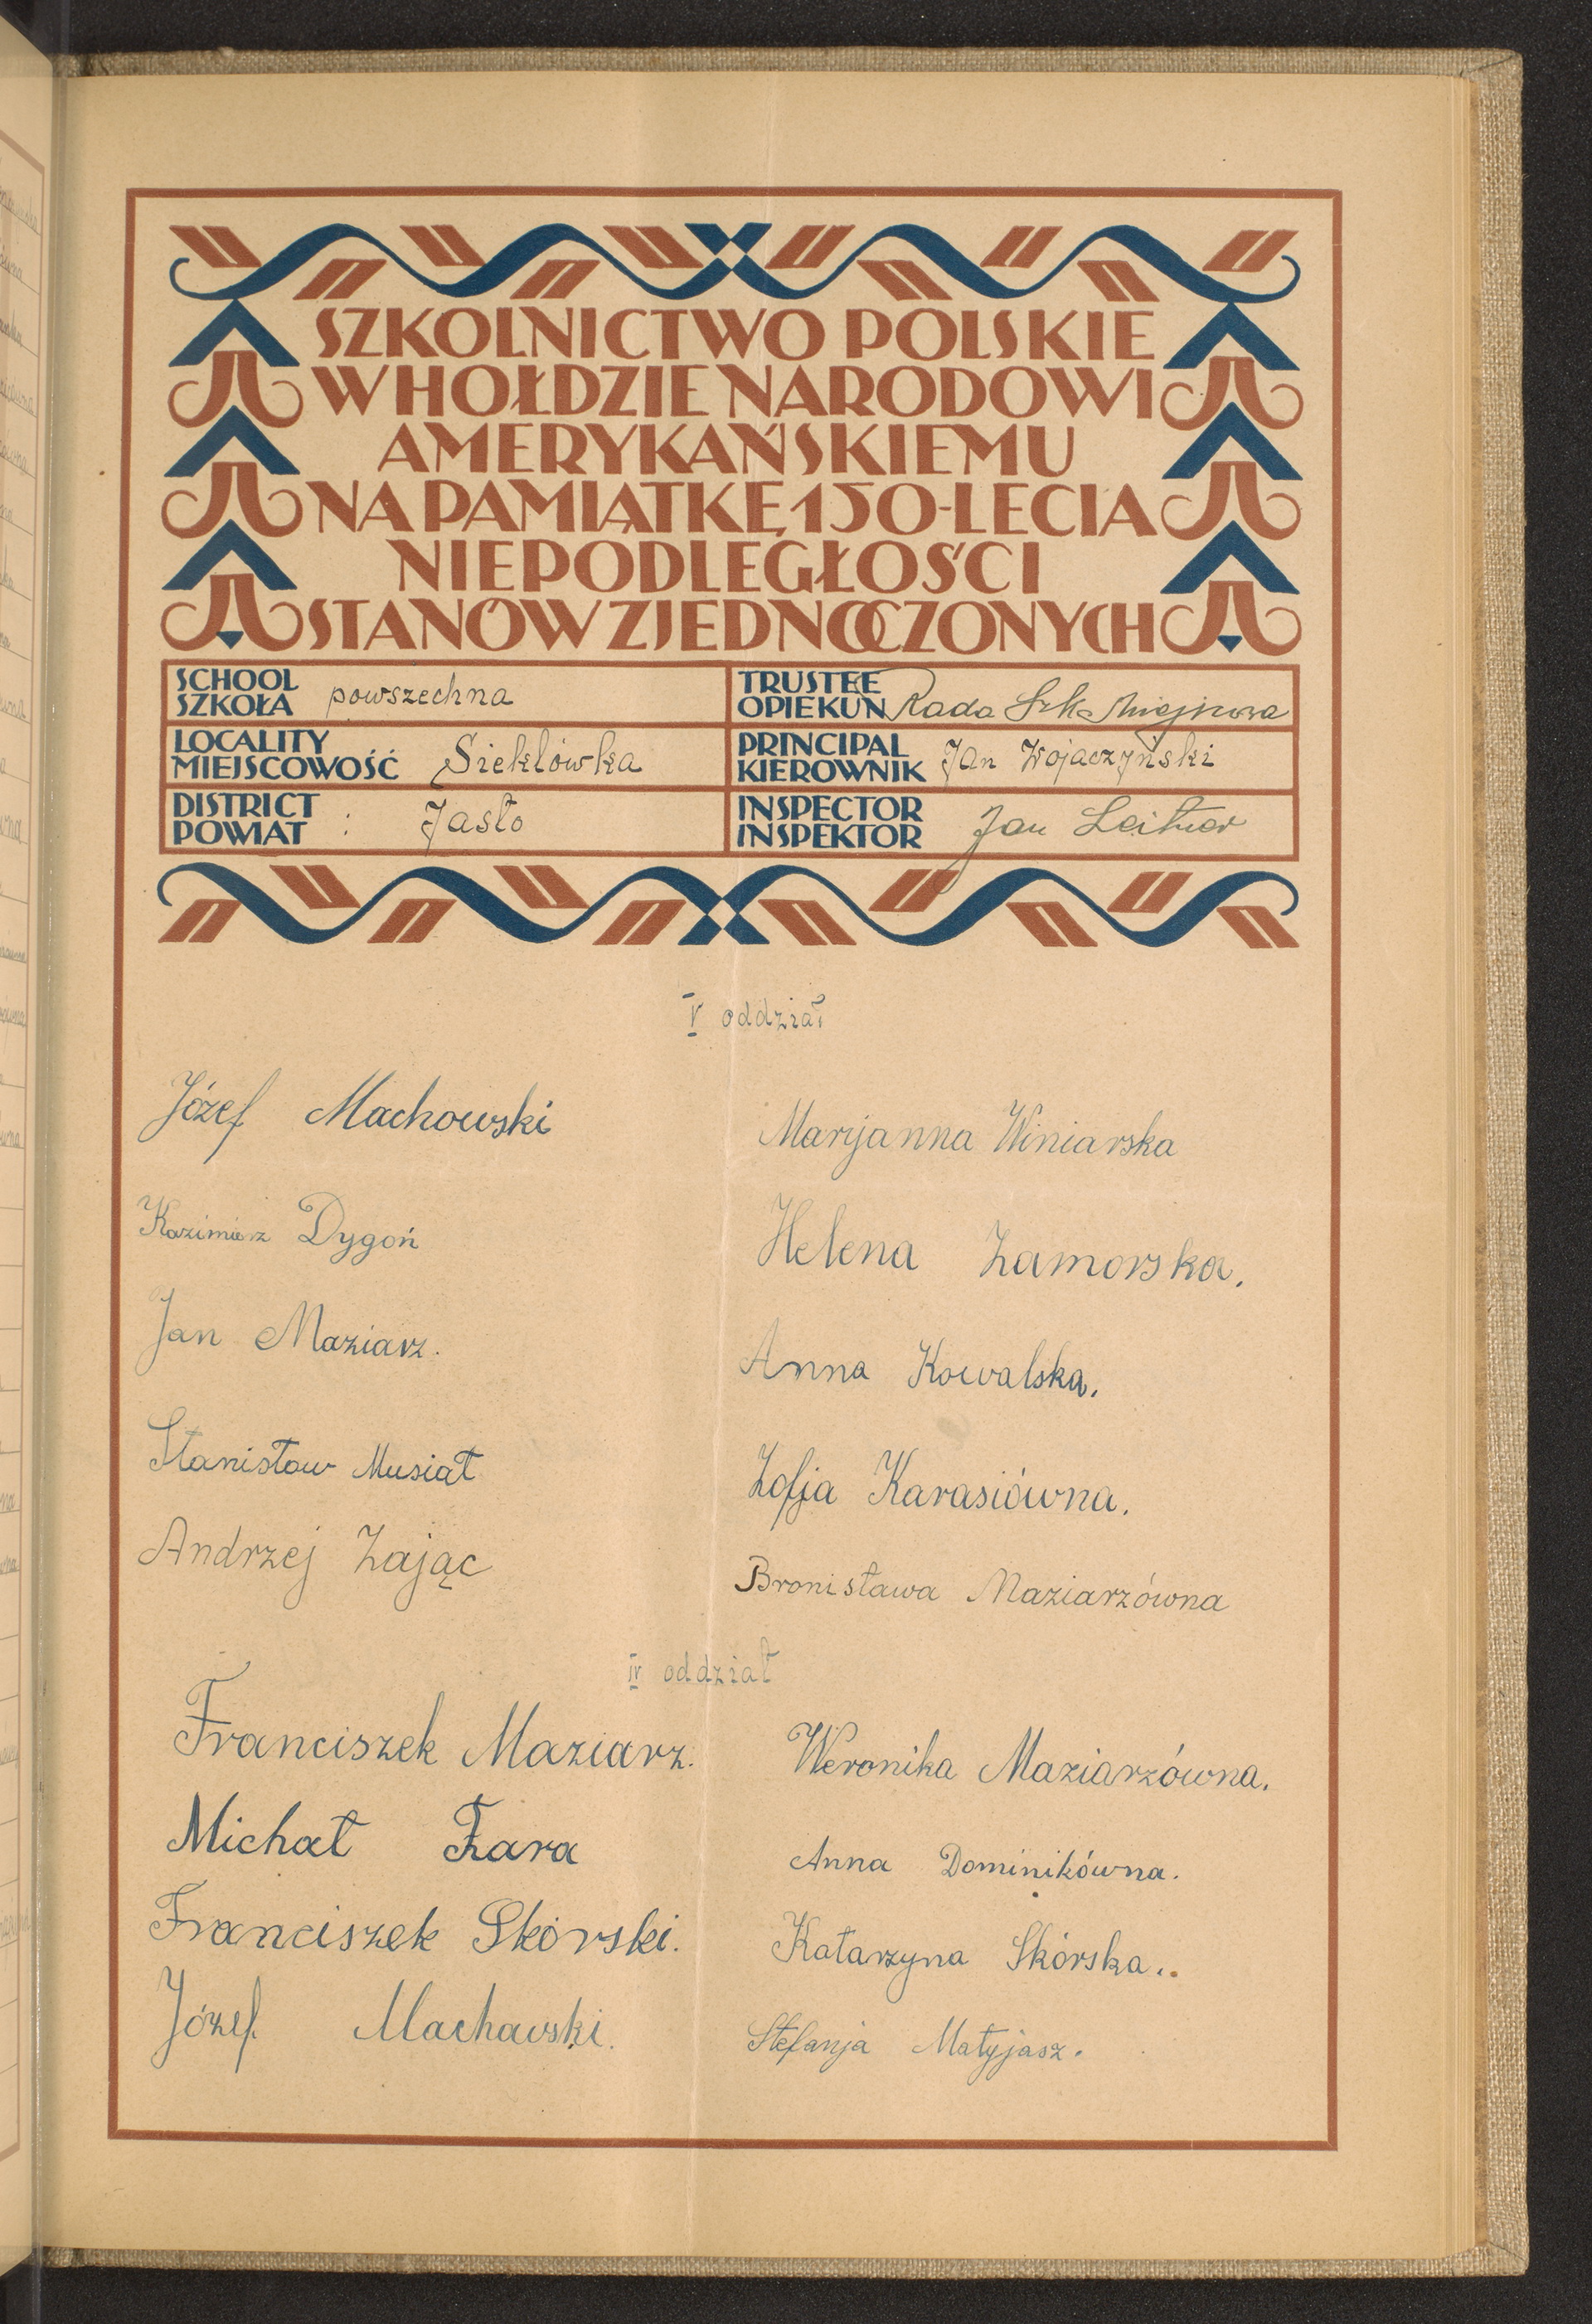 SZKOLNICTWO POLSKIE
W HOŁDZIE NARODOWI
AMERYKAŃSKIEMU
NA PAMIĄTKĘ 150-LECIA
NIEPODLEGŁOŚCI
STANÓW ZJEDNOCZONYCH
SCHOOL
SZKOŁA powszechna
TRUSTEE
OPIEKUN Rada Szk. Miejscowa
LOCALITY
MIEJSCOWOŚĆ Sieklówka
PRINCIPAL
KIEROWNIK Jan Wojaczyński
DISTRICT
POWIAT : Jasło
INSPECTOR
INSPEKTOR Jan Leitner
V oddział
Józef Machowski
Marijanna Winiarska
Kazimierz Dygoń
Helena Zamorska.
Jan Maziarz.
Anna Kowalska.
Stanisław Musiał
Zofja Karasiówna.
Andrzej Zając
Bronisława Maziarzówna
IV oddział
Franciszek Maziarz.
Weronika Maziarzówna.
Michał Fara
Anna Dominikówna.
Franciszek Skórski.
Katarzyna Skórska..
Józef Machowski.
Stefanja Matyjasz.